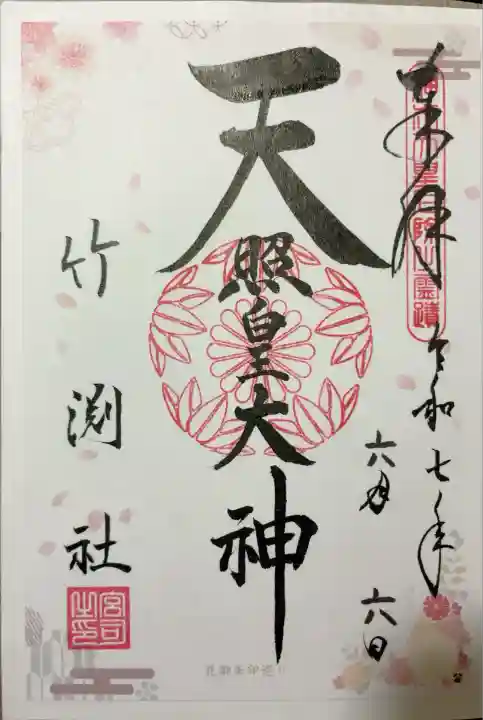 奉拝
令和七年
六月
六日
天照皇大神
竹渕社
宮司之印